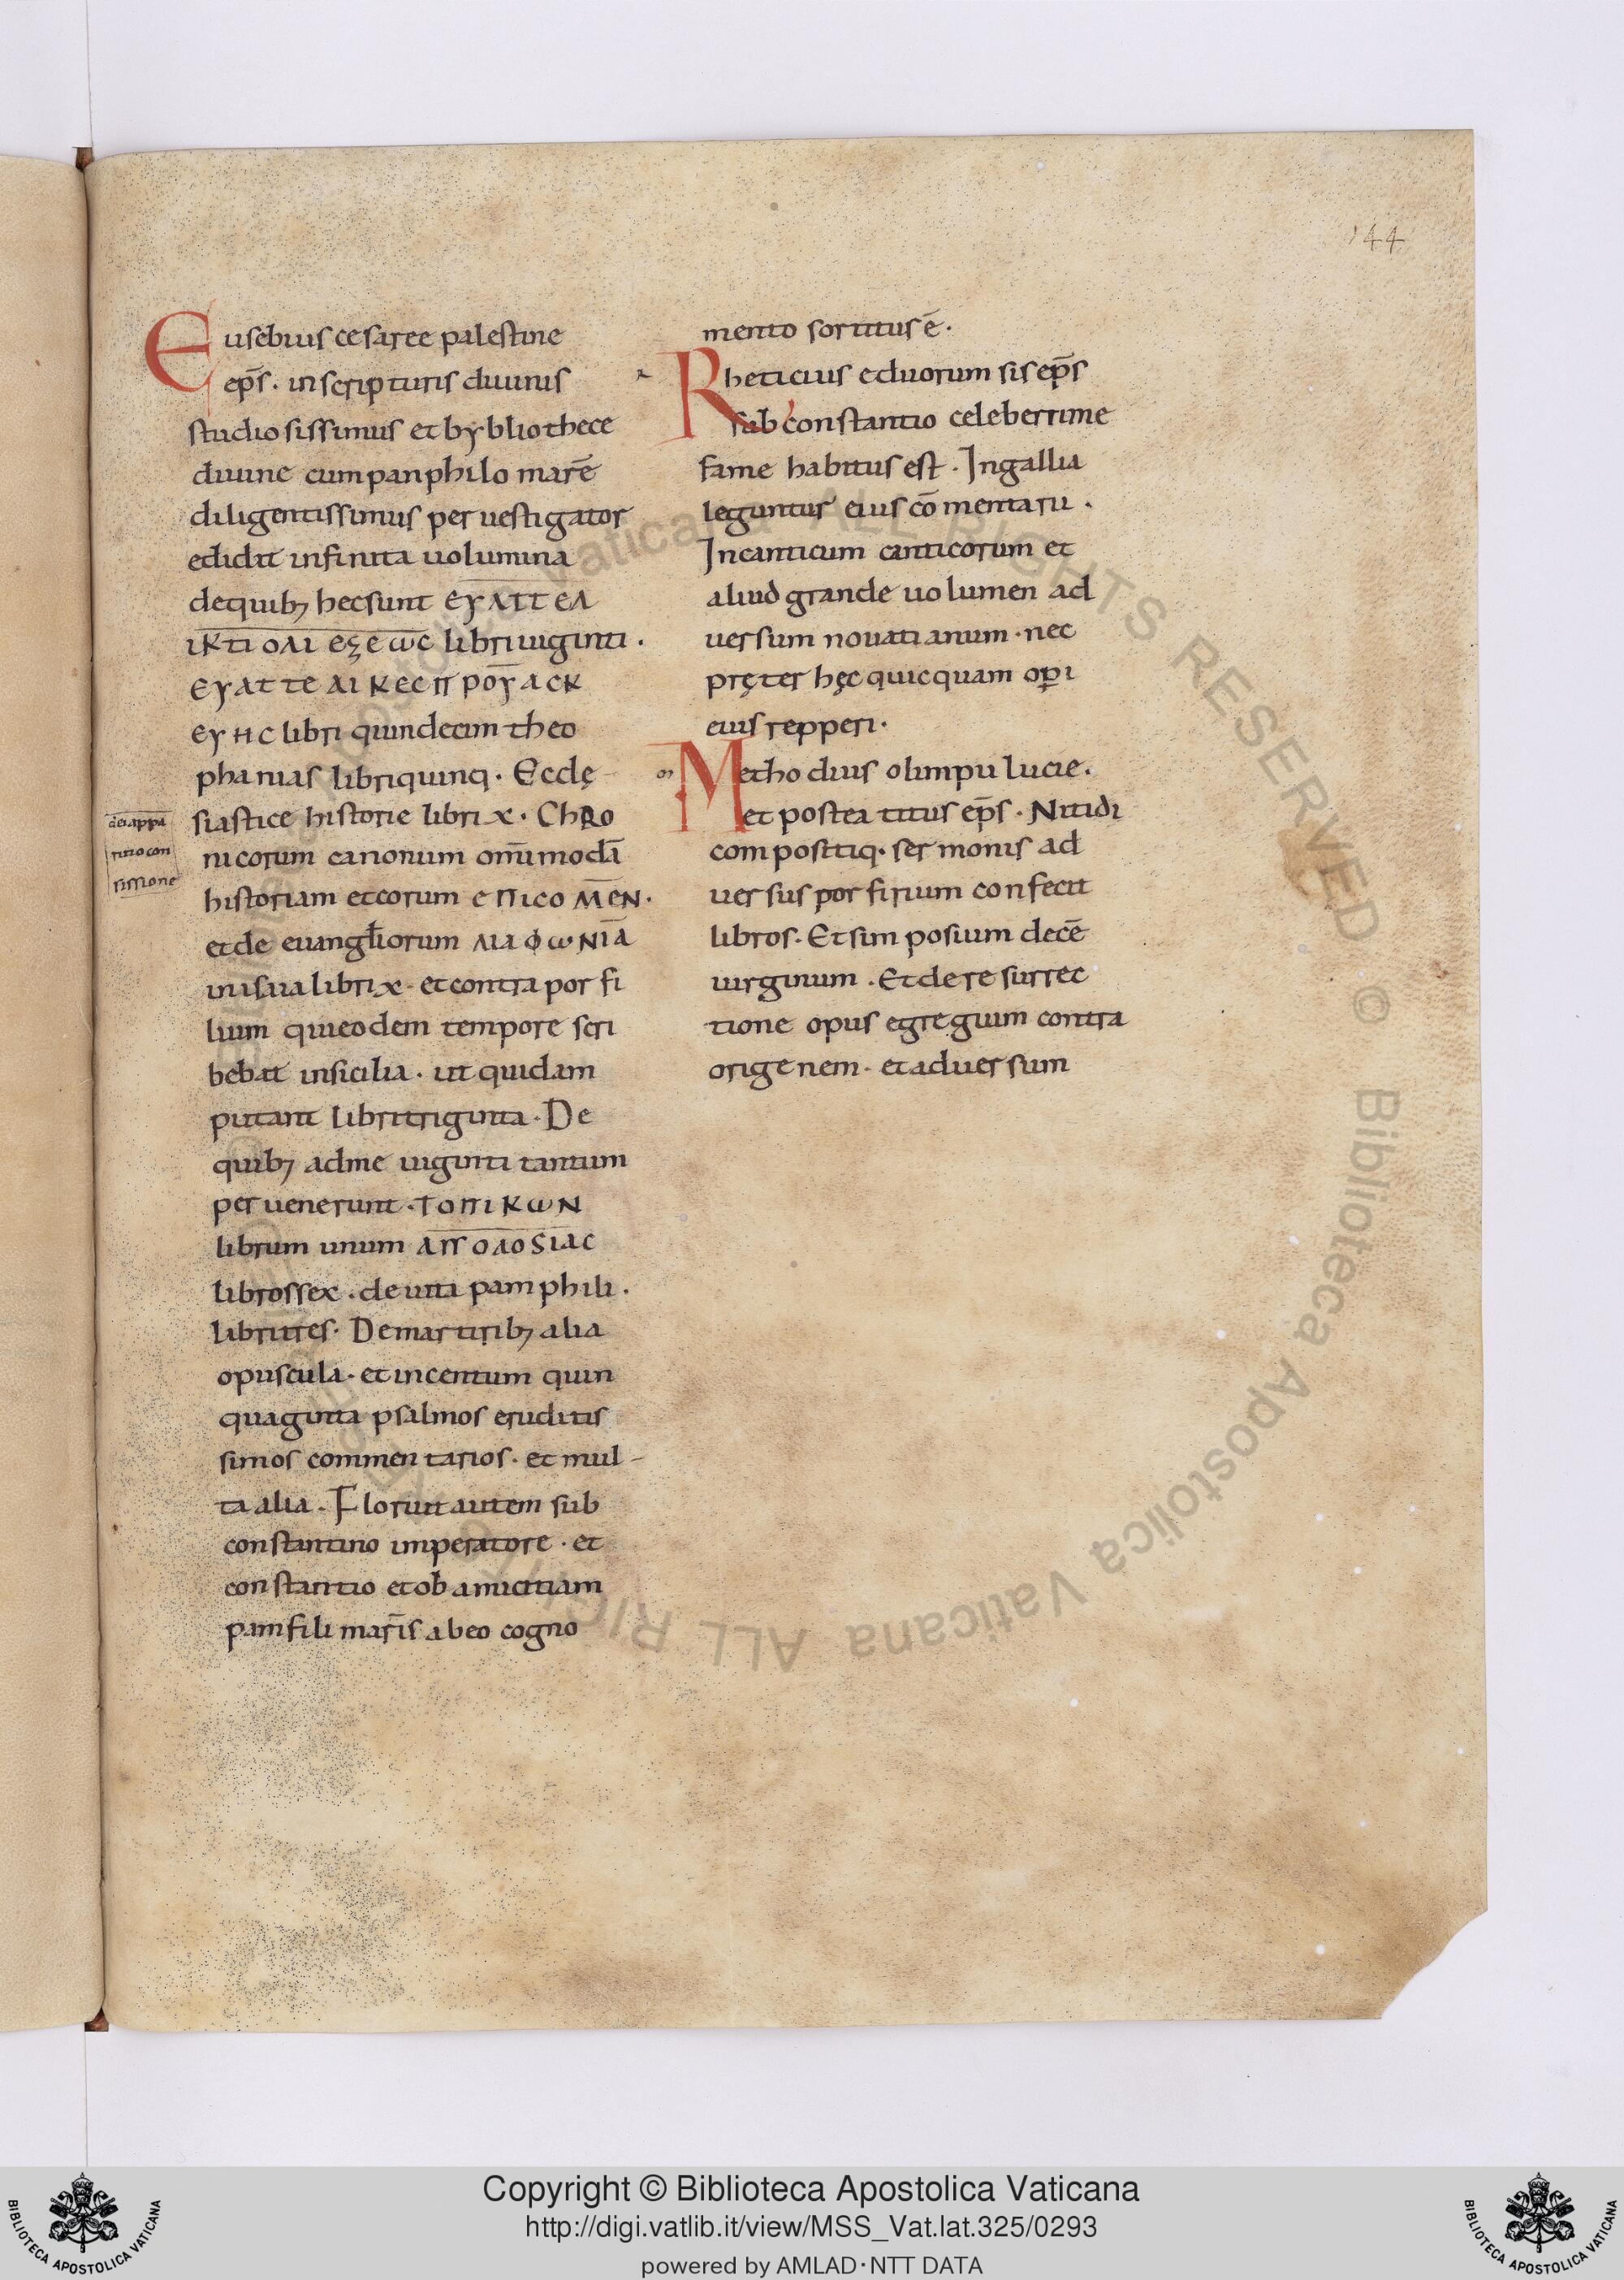 144
Eusebius cesaree palestine
ep̄s. in scripturis diuinis
studiosissimus et bybliothece
diuine cum panphilo mar̄e
diligentissimus peruestigator
edidit infinita uolumina
de quibꝫ hec sunt ЄΥΛΤΤЄΛ
ΙΚΤΙ ΟΛΙ ЄΞЄ ωC libri uiginti.
ЄΥΑΤΤЄ ΛΙΚЄC ΠΡΟΥ ΑCΚ
ЄΥΗC libri quindecim theo
phanias libri quinq. Ecclę
siastice historie libri x. Chro
dei appa
nicorum canonum om̄imodā
ritio con
fissione
historiam et eorum ЄΠΙCO M̄ЄN.
et de euangl̄iorum ΛΙΑΦωNIA
in isua libri x. et contra porfi
lium qui eodem tempore scri
bebat in sicilia. ut quidam
putant libri triginta. De
quibꝫ ad me uiginti tantum
peruenerunt. ΤΟΠΙΚωΝ
librum unum ΑΠΟΛΟSΙΑC
libros sex. de uita pamphili.
libri tres. De martiribꝫ alia
opuscula. et in centum quin
quaginta psalmos eruditis
simos commentarios. et mul-
ta alia. Floruit autem sub
constantino imperatore. et
constantio et ob amicitiam
pamfili mar̄is ab eo cogno
mento sortitus ē.
Rheticius eduorum sis ep̄s
sub constantio celeberrime
fame habitus est. In gallia
leguntur eius cōmentarii.
In canticum canticorum et
aliud grande uolumen ad
uersum nouatianum. nec
pręter hęc quicquam op̲i
eius repperi.
Methodius olimpii lucie.
et postea titus ep̄s. Nitidi
compositiq. sermonis ad
uersus porfirium confecit
libros. Et simposium decē
uirginum. Et de resurrec
tione opus egregium contra
origenem. et aduersum
Copyright © Biblioteca Apostolica Vaticana
http://digi.vatlib.it/view/MSS_Vat.lat.325/0293
powered by AMLAD·NTT DATA
BIBLIOTECA APOSTOLICA VATICANA
BIBLIOTECA APOSTOLICA VATICANA